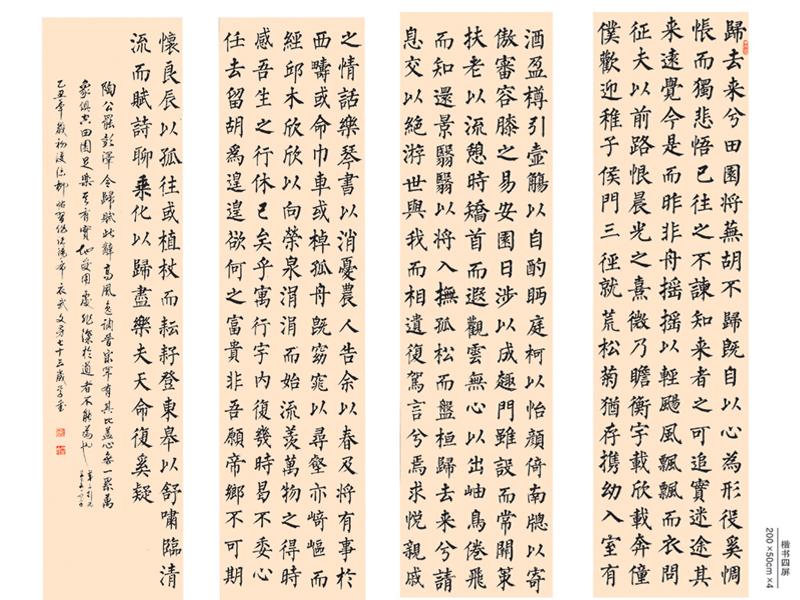 歸去来兮田園将蕪胡不歸旣自以心為形役奚惆
悵而獨悲悟已往之不諫知来者之可追實迷途其
来遠覺今是而昨非舟摇摇以輕颺風飄飄而衣問
征夫以前路恨晨光之熹微乃瞻衡宇載欣載奔僮
僕歡迎稚子侯門三徑就荒松菊猶存携幼入室有
酒盈樽引壺觴以自酌眄庭柯以怡顔倚南牕以寄
傲審容膝之易安園日涉以成趣門雖設而常關策
扶老以流憩時矯首而遐觀雲無心以出岫鳥倦飛
而知還景翳翳以将入撫孤松而盤桓歸去来兮請
息交以絶游世與我而相遺復駕言兮焉求悦親戚
之情話樂琴書以消憂農人告余以春及将有事於
西疇或命巾車或棹孤舟旣窈窕以尋壑亦崎嶇而
經邱木欣欣以向榮泉涓涓而始流羨萬物之得時
感吾生之行休已矣乎寓行宇内復幾時曷不委心
任去留胡為遑遑欲何之富貴非吾願帝鄉不可期
懷良辰以孤往或植杖而耘耔登東皋以舒嘯臨清
流而賦詩聊乗化以歸盡樂夫天命復奚疑
陶公罷彭澤令歸賦此辭高風逸調晋宋罕有其比蓋心無一累萬
象俱空田園足樂真有實地受用處非深於道者不能為也
乙丑年歲初 七十三歲
楷书四屏
200×50cm×4